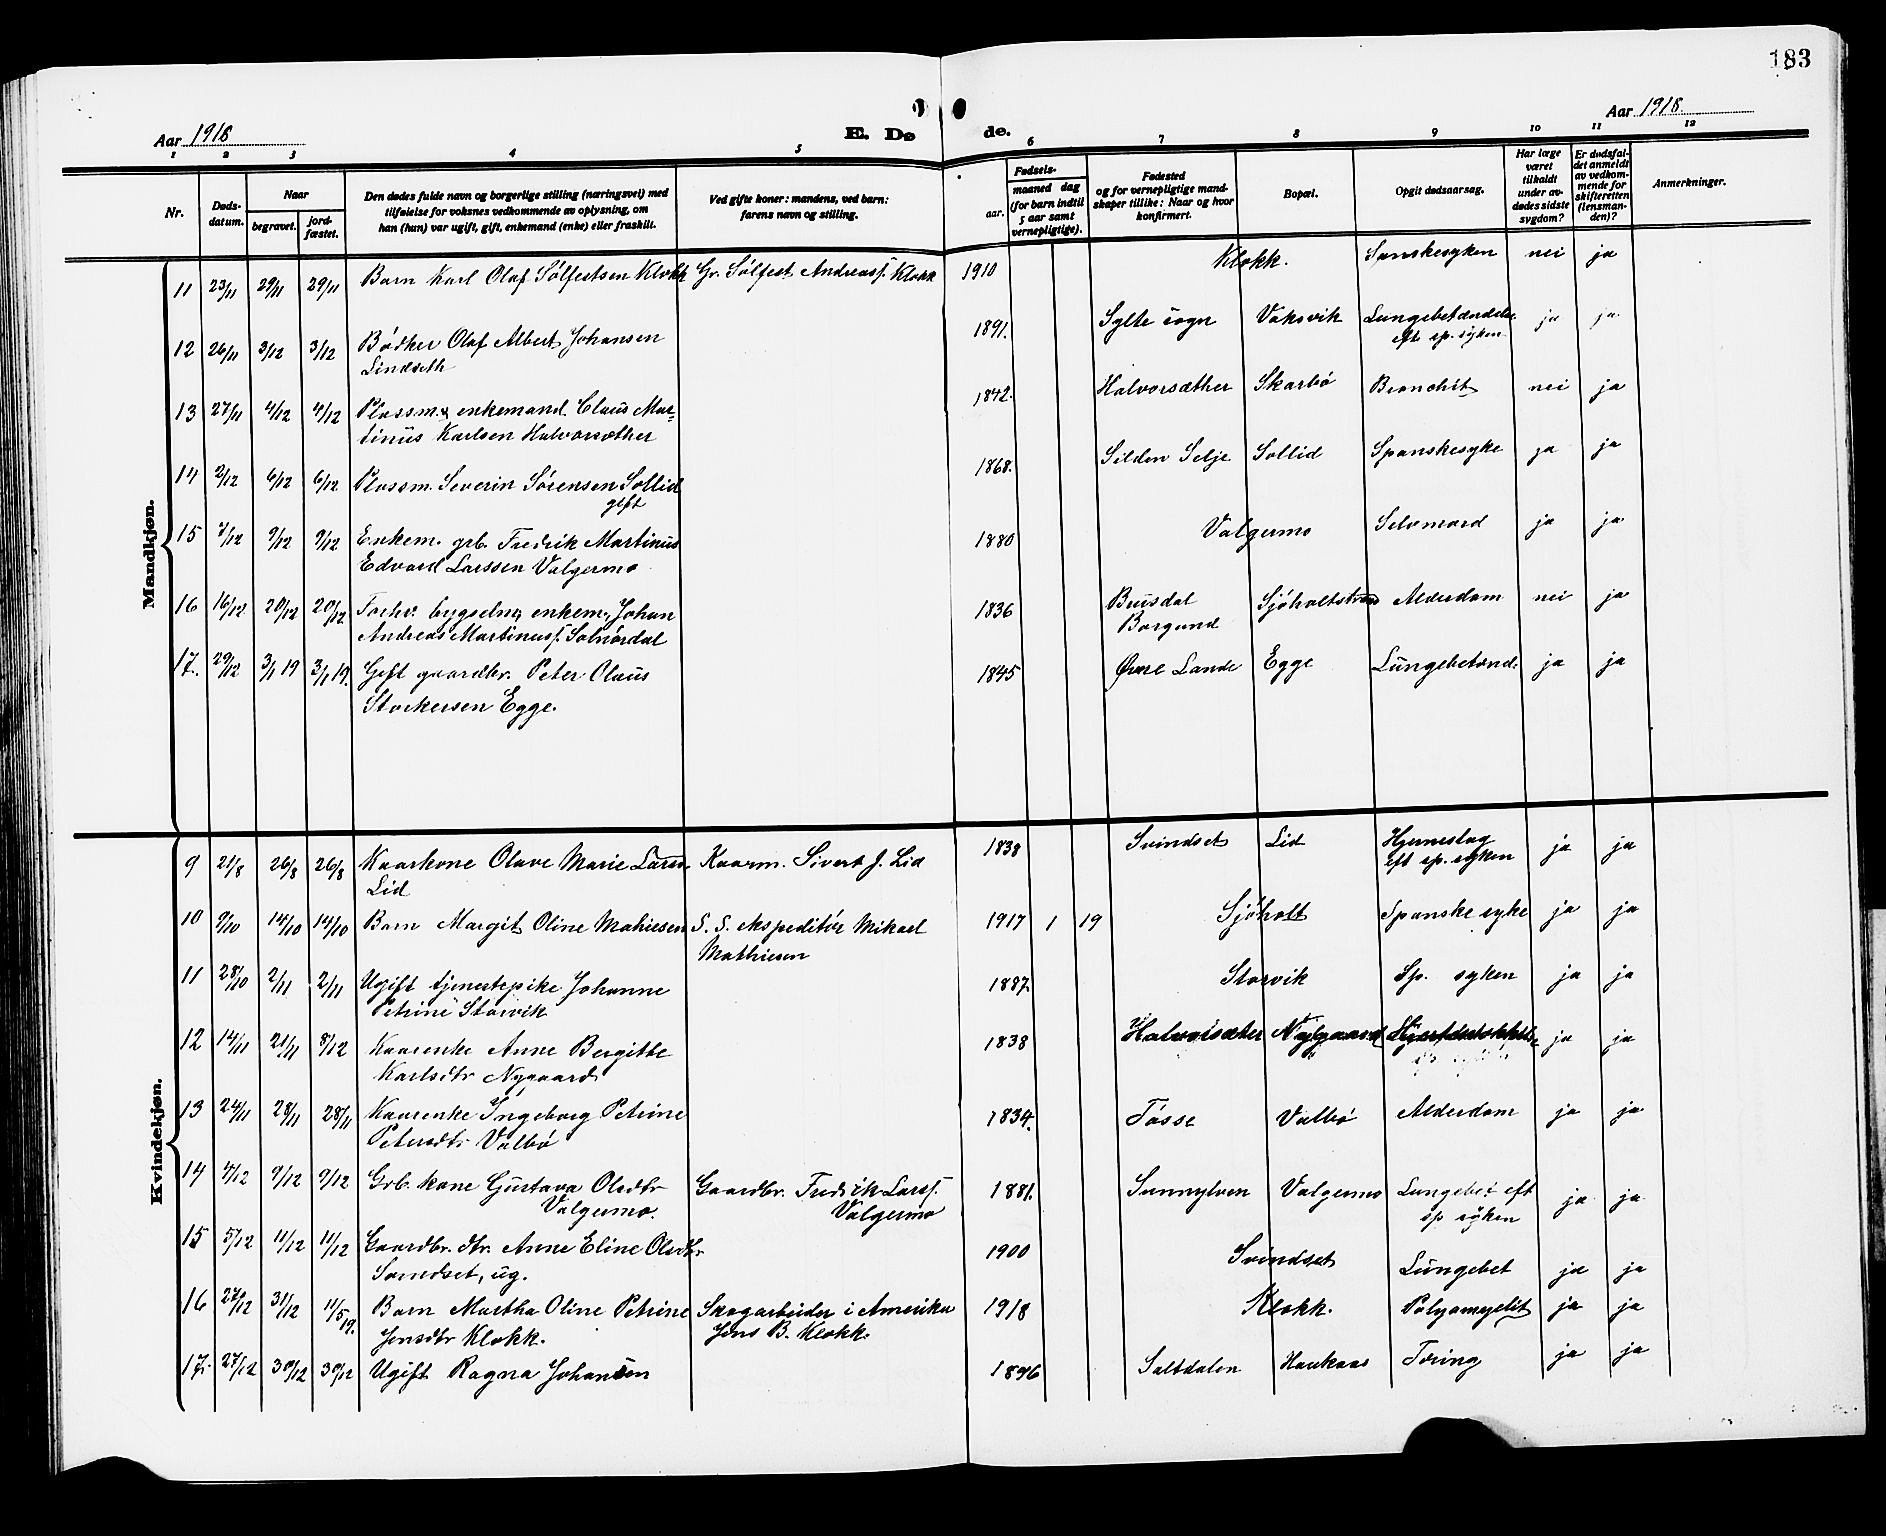 183
Aar 1918
E. Dø
de.
Aar 1918.
1 2 3 4 5 6 7 8 9 10 11 12
Nr.
Døds-
datum.
Naar
begravet.
jord-
fæstet.
Den dødes fulde navn og borgerlige stilling (næringsvei) med
tilføielse for voksnes vedkommende av oplysning, om
han (hun) var ugift, gift, enkemand (enke) eller fraskilt.
Ved gifte koner: mandens, ved barn:
farens navn og stilling.
Fødsels-
aar.
maaned dag
(for barn indtil
5 aar samt
vernepligtige).
Fødested
og for vernepligtige mand-
skaper tillike: Naar og hvor
konfirmert.
Bopæl.
Opgit dødsaarsag.
Har læge
været
tilkaldt
under av-
dødes sidste
sygdom?
Er dødsfal-
det anmeldt
av vedkom-
mende for
skifteretten
(lensman-
den)?
Anmerkninger.
Mandkjøn.
11 23/11 29/11 29/11 Barn Karl Olaf Sølfestsen Klokk Gr. Sølfest Andreass. Klokk 1910 Klokk. Spanskesyken nei ja
12 26/11 3/12 3/12 Bødker Olaf Albert Johansen 1891. Sylte sogn Vaksvik Lungebetændelse ja ja
Lindseth eft sp. syken
13 27/11 4/12 4/12 Plassm. & enkemand Claus Mar- 1842. Halvorsæther Skarbø Bronchit nei ja
tinus Karlsen Halvorsæther
14 2/12 6/12 6/12 Plassm. Severin Sørensen Sollid 1868. Silden Selje Sollid Spanskesyke ja ja
gift
15 7/12 9/12 9/12 Enkem. grb. Fredrik Martinus 1880 Valgermo Selvmord ja ja
Edvard Larssen Valgermo
16 16/12 20/12 20/12 Forhv. bygselm, enkem, Johan 1836 Buusdal Sjøholtstrand Alderdom nei ja
Andreas Martinuss. Solnørdal Borgund
17. 29/12 3/1 19 3/1 19. Gift gaardbr. Peter Claus 1845 Øvre Lande Egge Lungebetænd. ja ja
Storkersen Egge.
Kvindekjøn.
9 21/8 26/8 26/8 Kaarkone Olave Marie Larsd Kaarm. Sivert J. Lid 1838 Svindset Lid Hjerneslag ja ja
Lid eft sp. syken
10 9/10 14/10 14/10 Barn Margit Oline Mathiesen S. S. ekspeditør Mikael 1917 1 19 Sjøholt Spanske syke ja ja
Mathiesen
11 28/10 2/11 2/11 Ugift tjenestepike Johanne 1887. Storvik Sp. syken ja ja
Petrine Storvik
12 14/11 21/11 8/12 Kaarenke Anne Bergitte 1838 Halvorsæter Nygaard ja ja
Karlsdtr Nygaard
13 24/11 28/11 28/11 Kaarenke Ingeborg Petrine 1834. Tøsse Valbø Alderdom ja ja
Petersdtr Valbø
14 4/12 9/12 9/12 Grb. kone Gustava Olsdtr Gaardbr. Fredrik Larss. 1881. Sunnylven Valgermo Lungebet eft ja ja
Valgermo. Valgermo sp syken
15 5/12 11/12 11/12 Gaardbr. dtr. Anne Eline Olsdtr 1900 Svindset Lungebet ja ja
Svindset, ug.
16 27/12 31/12 11/5 19. Barn Martha Oline Petrine Skogarbeider i Amerika 1918 Klokk. Polyomyelit ja ja
Jensdtr Klokk. Jens B. Klokk.
17. 27/12 30/12 30/12 Ugift Ragna Johansen 1896 Saltdalen Haukaas Tæring ja ja